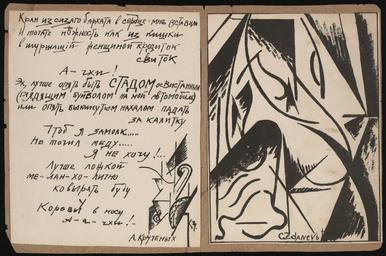 Кран из сизого бархата в сердце мне вставили
и потечь нежность как из кишки
в шуршащий женщиной кредиток
свиток
А-чхи!
Эх, лучше опять быть СТАДОМ освистанным
глядящим буйволом на мой автомобиль
или опять выкинутым нахалом падать
за калитку
Чтоб я замолк.....
Не точил меду.....
Я не хочу!...
Лучше ложкой
ме-лан-хо-лично
ковырять бузу
в носу
А-а-чхи!..
А. Крученых
C. Zdanevi